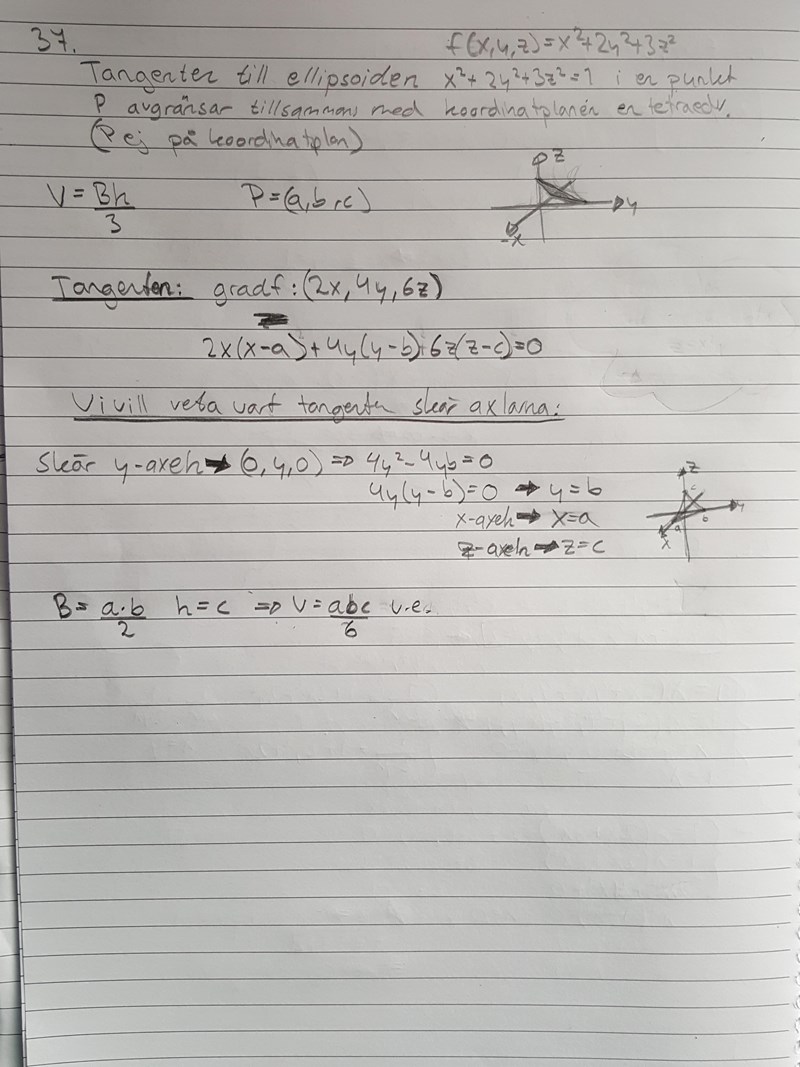 37. f(x,y,z)=x²+2y²+3z²
Tangenter till ellipsoiden x²+2y²+3z²=1 i en punkt
P avgränsar tillsammans med koordinatplanen en tetraedr.
(P ej på koordinatplan)
V = Bh/3 P=(a,b,c)
z
y
-x
Tangenten: gradf:(2x,4y,6z)
2x(x-a)+4y(y-b)+6z(z-c)=0
Vi vill veta vart tangenten skär axlarna:
Skär y-axeln → (0,y,0) ⇒ 4y²-4yb=0
4y(y-b)=0 → y=b
x-axeln → x=a
z-axeln → z=c
z
c
y
b
a
x
B= a·b/2 h=c ⇒ V= abc/6 v.e.